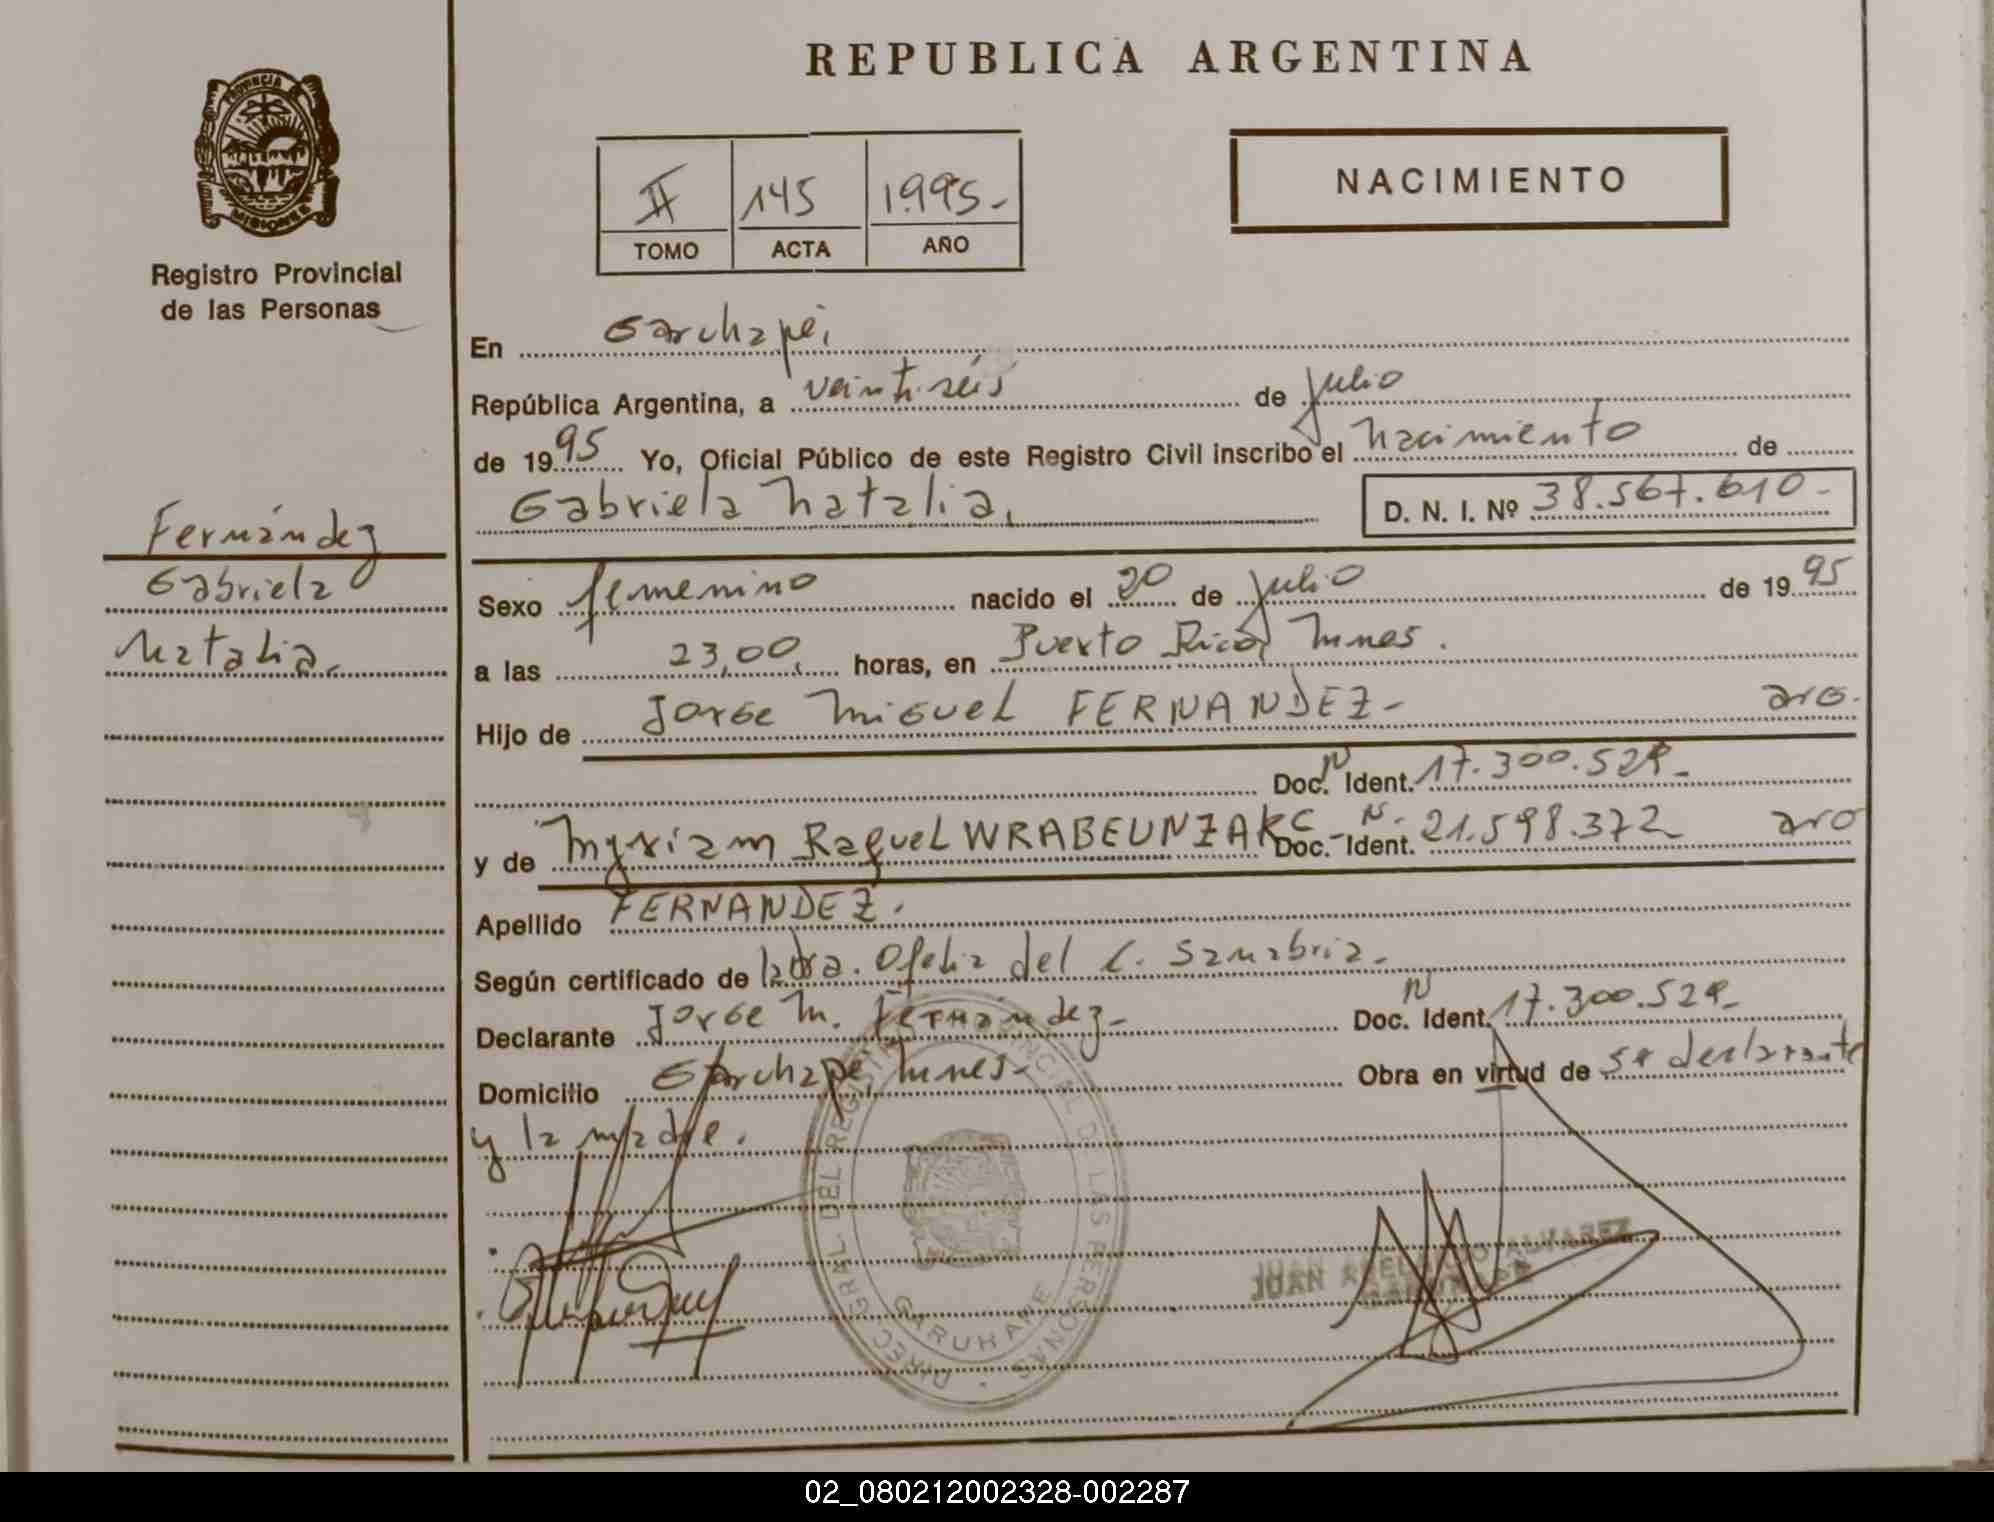 REPUBLICA ARGENTINA
PROVINCIA DE MISIONES
Registro Provincial
de las Personas
II 145 1.995-
TOMO ACTA AÑO
NACIMIENTO
En Garuhapé,
República Argentina, a veintiséis de Julio
de 1995 Yo, Oficial Público de este Registro Civil inscribo el nacimiento de
Gabriela Natalia, D. N. I. Nº 38.567.610-
Fernández
Gabriela
Natalia.
Sexo femenino nacido el 20 de Julio de 1995
a las 23,00, horas, en Puerto Rico, Mnes.
Hijo de Jorge Miguel FERNANDEZ- arg.
Doc. N Ident. 17.300.529-
y de Myriam Raquel WRABEUNZAK Doc. N. Ident. 21.598.372 arg
Apellido FERNANDEZ.
Según certificado de la dra. Ofelia del C. Sanabria.
Declarante Jorge M. Fernández- Doc. N Ident. 17.300.529-
Domicilio Garuhapé, Mnes- Obra en virtud de ser declarante
y la madre.
DIREC. GRAL. DEL REGISTRO PROVINCIAL DE LAS PERSONAS
GARUHAPE
JUAN ALVAREZ
02_080212002328-002287